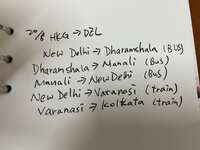 20/8 HKG → DEL
New Delhi → Dharamshala (BUS)
Dharamshala → Manali (Bus)
Manali → New Delhi (Bus)
New Delhi → Varanasi (train)
Varanasi → Kolkata (train)